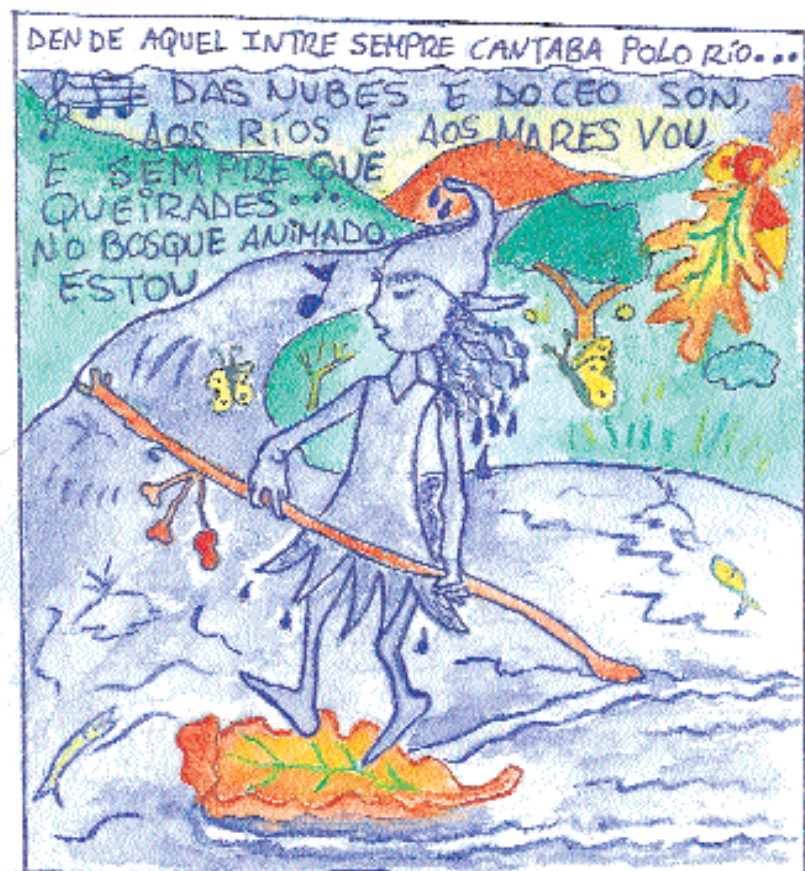 DENDE AQUEL INTRE SEMPRE CANTABA POLO RÍO...
DAS NUBES E DO CEO SON,
AOS RÍOS E AOS MARES VOU
E SEMPRE QUE
QUEIRADES...
NO BOSQUE ANIMADO
ESTOU